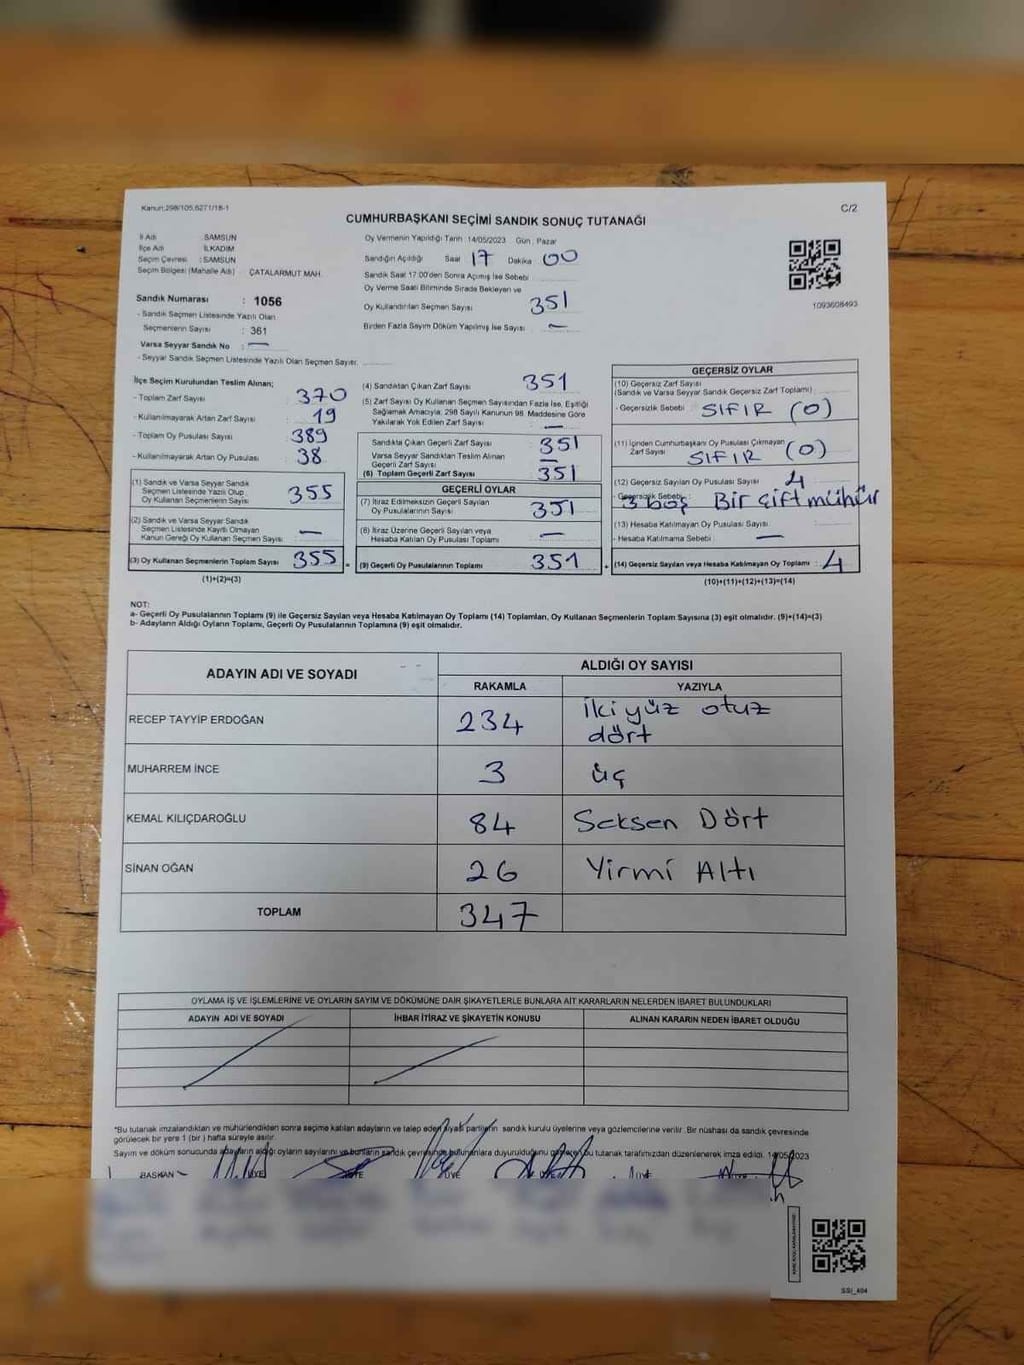 Kanun:298/105,6271/18-1
C/2
CUMHURBAŞKANI SEÇİMİ SANDIK SONUÇ TUTANAĞI
İl Adı : SAMSUN
İlçe Adı : İLKADIM
Seçim Çevresi : SAMSUN
Seçim Bölgesi (Mahalle Adı) : ÇATALARMUT MAH.
Sandık Numarası : 1056
- Sandık Seçmen Listesinde Yazılı Olan
Seçmenlerin Sayısı : 361
Varsa Seyyar Sandık No : —
- Seyyar Sandık Seçmen Listesinde Yazılı Olan Seçmen Sayısı:
Oy Vermenin Yapıldığı Tarih : 14/05/2023 Gün : Pazar
Sandığın Açıldığı Saat 17 Dakika 00
Sandık Saat 17.00'den Sonra Açılmış İse Sebebi :
Oy Verme Saati Bitiminde Sırada Bekleyen ve
Oy Kullandırılan Seçmen Sayısı : 351
Birden Fazla Sayım Döküm Yapılmış İse Sayısı : —
1093608493
İlçe Seçim Kurulundan Teslim Alınan;
- Toplam Zarf Sayısı : 370
- Kullanılmayarak Artan Zarf Sayısı : 19
- Toplam Oy Pusulası Sayısı : 389
- Kullanılmayarak Artan Oy Pusulası : 38
(1) Sandık ve Varsa Seyyar Sandık
Seçmen Listesinde Yazılı Olup
Oy Kullanan Seçmenlerin Sayısı : 355
(2) Sandık ve Varsa Seyyar Sandık
Seçmen Listesinde Kayıtlı Olmayan
Kanun Gereği Oy Kullanan Seçmen Sayısı : —
(3) Oy Kullanan Seçmenlerin Toplam Sayısı : 355 =
(1)+(2)=(3)
(4) Sandıktan Çıkan Zarf Sayısı : 351
(5) Zarf Sayısı Oy Kullanan Seçmen Sayısından Fazla İse, Eşitliği
Sağlamak Amacıyla; 298 Sayılı Kanunun 98. Maddesine Göre
Yakılarak Yok Edilen Zarf Sayısı : —
Sandıkta Çıkan Geçerli Zarf Sayısı : 351
Varsa Seyyar Sandıktan Teslim Alınan
Geçerli Zarf Sayısı : —
(6) Toplam Geçerli Zarf Sayısı : 351
GEÇERLİ OYLAR
(7) İtiraz Edilmeksizin Geçerli Sayılan
Oy Pusulalarının Sayısı : 351
(8) İtiraz Üzerine Geçerli Sayılan veya
Hesaba Katılan Oy Pusulası Toplamı : —
(9) Geçerli Oy Pusulalarının Toplamı : 351 +
GEÇERSİZ OYLAR
(10) Geçersiz Zarf Sayısı
(Sandık ve Varsa Seyyar Sandık Geçersiz Zarf Toplamı) :
- Geçersizlik Sebebi : SIFIR (0)
(11) İçinden Cumhurbaşkanı Oy Pusulası Çıkmayan
Zarf Sayısı : SIFIR (0)
(12) Geçersiz Sayılan Oy Pusulası Sayısı : 4
- Geçersizlik Sebebi : 3 boş Bir çift mühür
(13) Hesaba Katılmayan Oy Pusulası Sayısı :
- Hesaba Katılmama Sebebi : —
(14) Geçersiz Sayılan veya Hesaba Katılmayan Oy Toplamı : 4
(10)+(11)+(12)+(13)=(14)
NOT:
a- Geçerli Oy Pusulalarının Toplamı (9) ile Geçersiz Sayılan veya Hesaba Katılmayan Oy Toplamı (14) Toplamları, Oy Kullanan Seçmenlerin Toplam Sayısına (3) eşit olmalıdır. (9)+(14)=(3)
b- Adayların Aldığı Oyların Toplamı, Geçerli Oy Pusulalarının Toplamına (9) eşit olmalıdır.
ADAYIN ADI VE SOYADI
ALDIĞI OY SAYISI
RAKAMLA YAZIYLA
RECEP TAYYİP ERDOĞAN 234 iki yüz otuz
dört
MUHARREM İNCE 3 üç
KEMAL KILIÇDAROĞLU 84 Seksen Dört
SİNAN OĞAN 26 Yirmi Altı
TOPLAM 347
OYLAMA İŞ VE İŞLEMLERİNE VE OYLARIN SAYIM VE DÖKÜMÜNE DAİR ŞİKAYETLERLE BUNLARA AİT KARARLARIN NELERDEN İBARET BULUNDUKLARI
ADAYIN ADI VE SOYADI İHBAR İTİRAZ VE ŞİKAYETİN KONUSU ALINAN KARARIN NEDEN İBARET OLDUĞU
*Bu tutanak imzalandıktan ve mühürlendikten sonra seçime katılan adayların ve talep eden siyasi partilerin sandık kurulu üyelerine veya gözlemcilerine verilir. Bir nüshası da sandık çevresinde
görülecek bir yere 1 (bir) hafta süreyle asılır.
Sayım ve döküm sonucunda adayların aldığı oyların sayılarını ve bunların sandık çevresinde bulunanlara duyurulduğunu gösterir bu tutanak tarafımızdan düzenlenerek imza edildi. 14/05/2023
BAŞKAN ÜYE ÜYE ÜYE ÜYE ÜYE
SSI_404